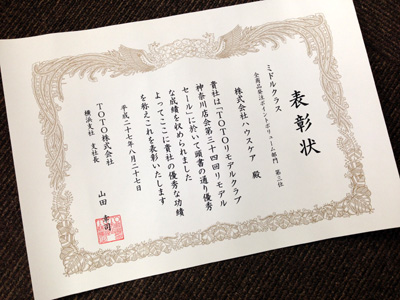 表彰状
ミドルクラス
全商品発注ポイントボリューム部門 第三位
株式会社ハウスケア 殿
貴社は「TOTOリモデルクラブ
神奈川店会第三十四回リモデル
セール」に於いて頭書の通り優秀
な成績を収められました
よってここに貴社の優秀な功績
を称えこれを表彰いたします
平成二十七年八月二十七日
TOTO株式会社
横浜支社 支社長
山田 幸司